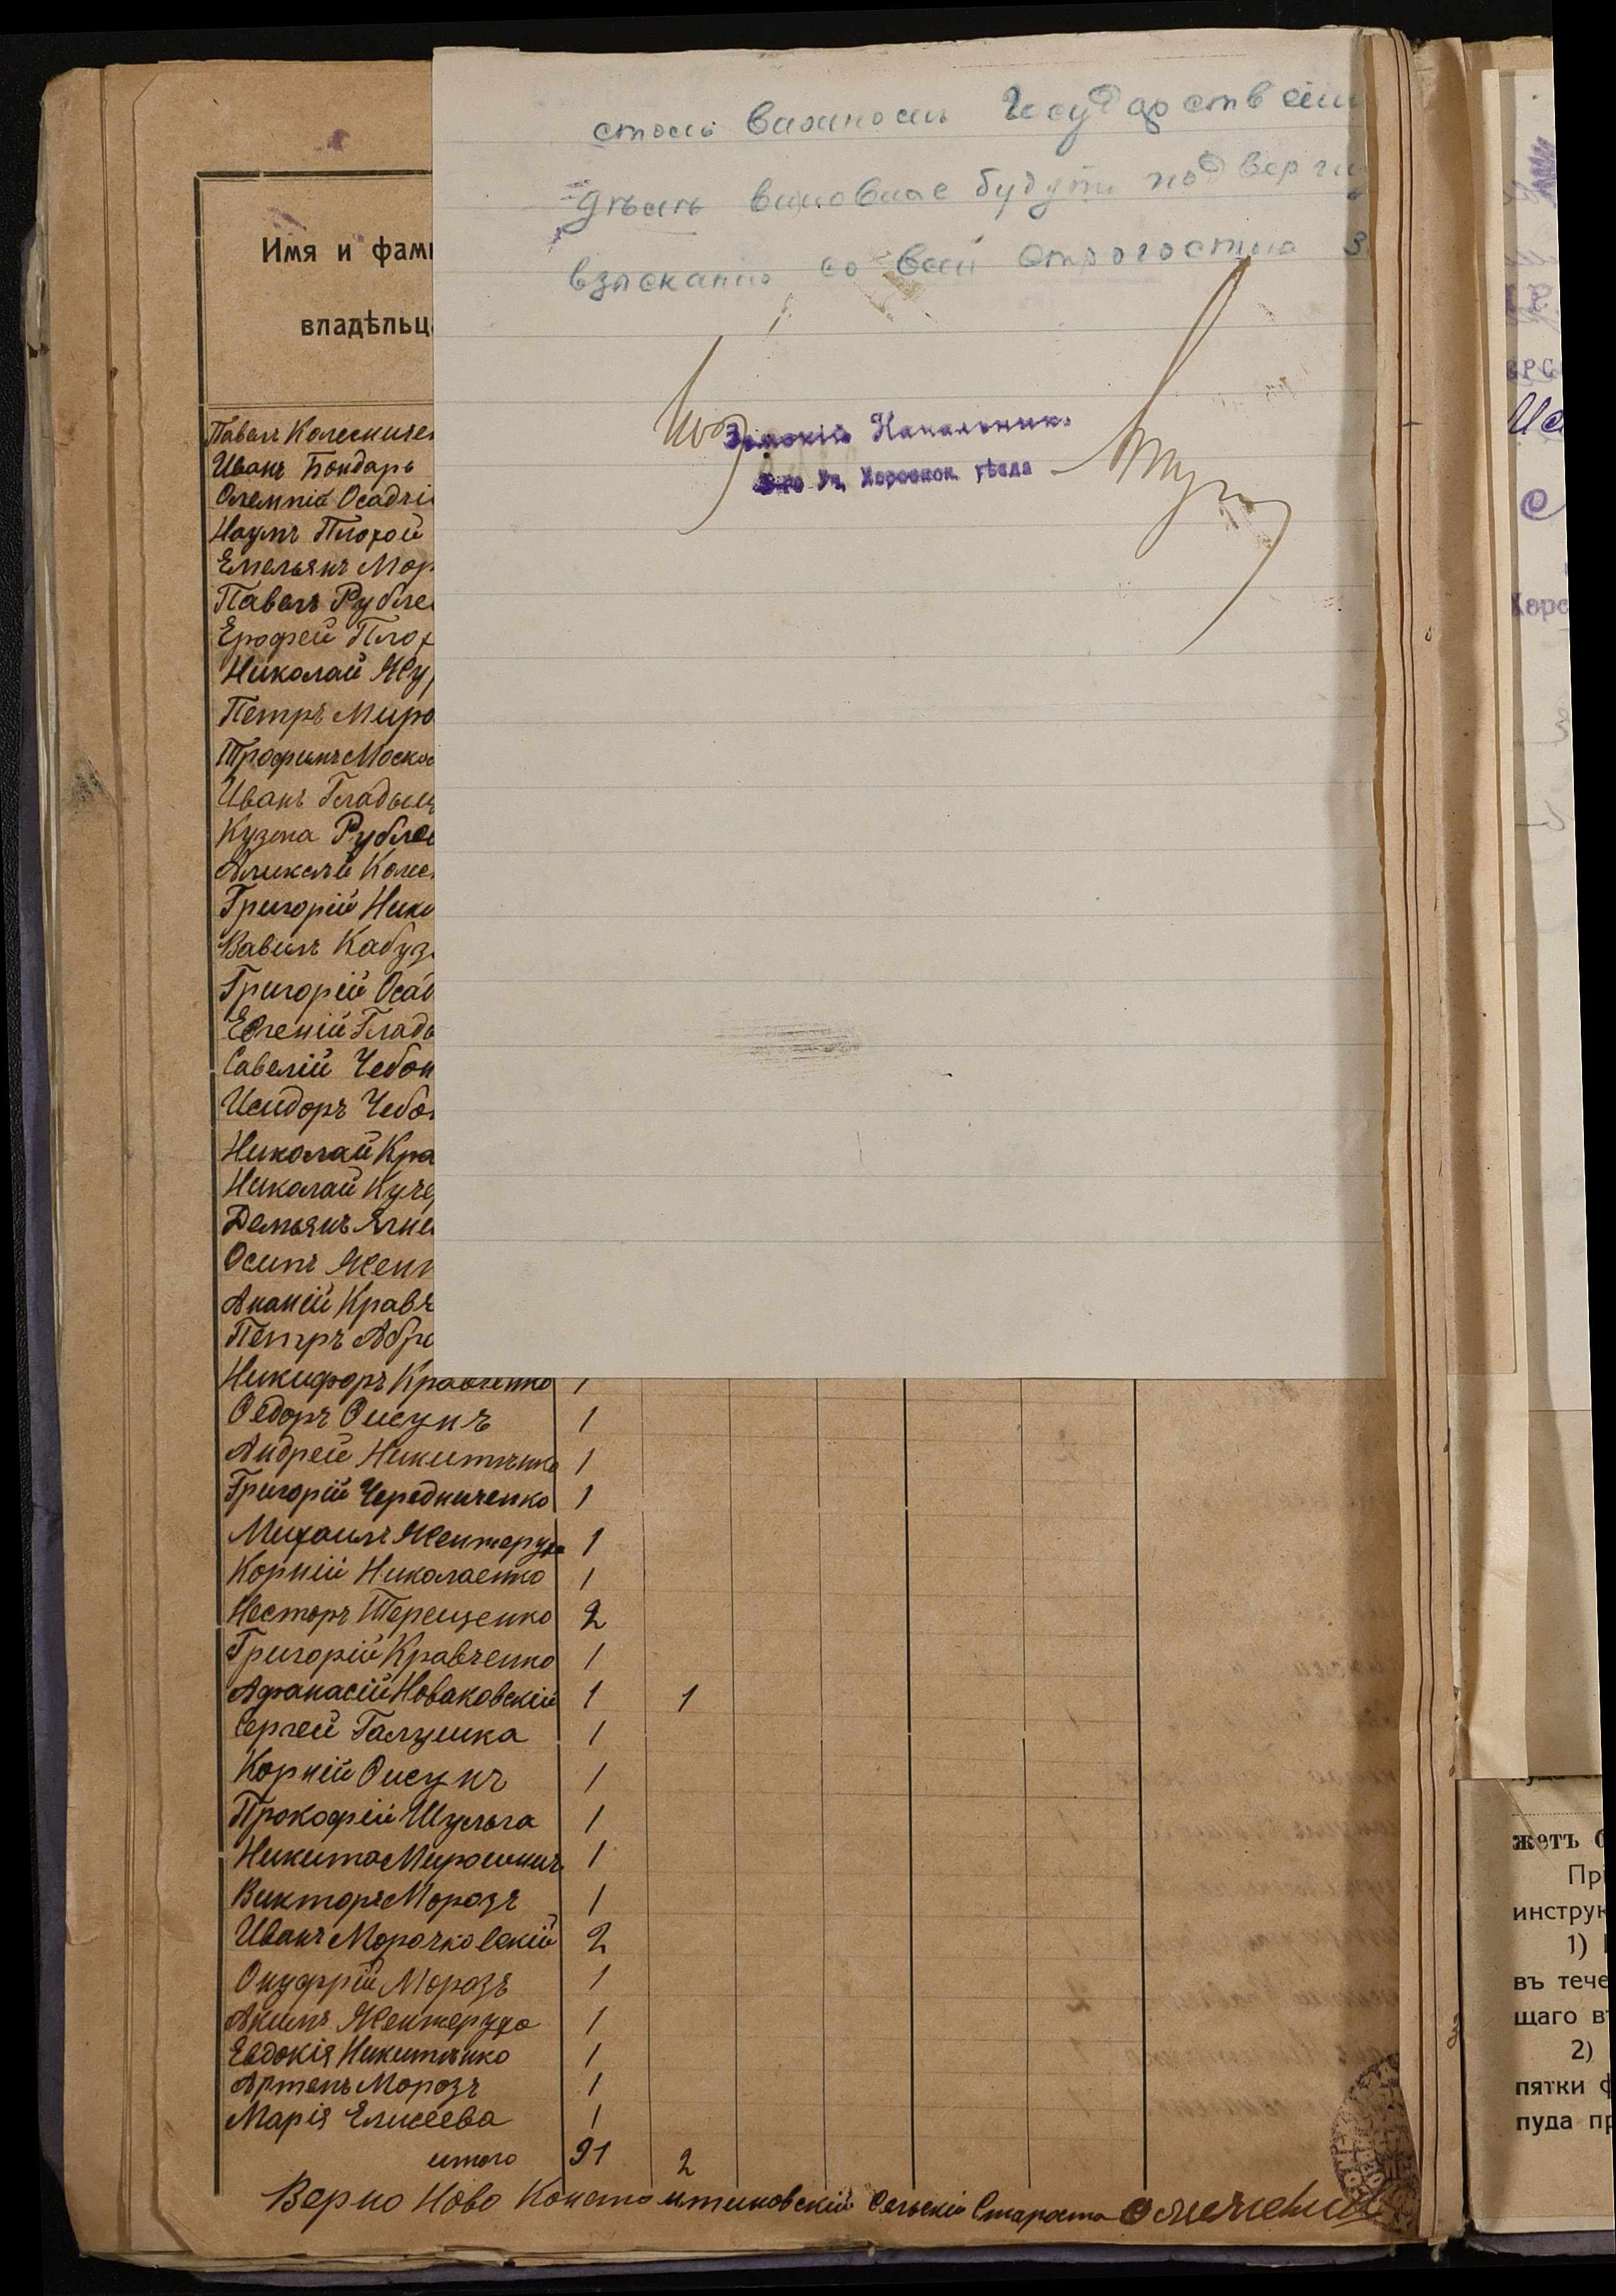 столь важномъ Государствен
дѣлѣ виновные будутъ подверг
взысканію со всей строгостью з
Земскій Начальник.
Уч. Херсонск. уѣзда
Имя и фами
владѣльц
Павелъ Колесничен
Иванъ Бондарь
Олемпій Осадчі
Наумъ Плохой
Емельянъ Мор
Павелъ Рублев
Ерофей Плох
Николай Жур
Петръ Миро
Трофимъ Моска
Иванъ Гладыш
Кузьма Рубле
Аликсѣй Колес
Григорій Нико
Вавилъ Кабуз
Григорій Осад
Евгеній Глады
Савелій Чебон
Исидоръ Чебо
Николай Кра
Николай Куче
Демьянъ Ягне
Осипъ Жент
Ананій Кравч
Петръ Абра
Никифоръ Кравченко 1
Ѳедоръ Оисунъ 1
Андрей Никитченко 1
Григорій Чередниченко 1
Михаилъ Жентеруха 1
Корній Николаенко 1
Несторъ Терещенко 2
Григорій Кравченко 1
Афанасій Новаковскій 1 1
Сергей Галушка 1
Корній Оисунъ 1
Прокофій Шульга 1
Никита Мирошнич 1
Викторъ Морозъ 1
Иванъ Морочковскій 2
Онуфрій Морозъ 1
Акимъ Жентерухо 1
Евдокія Никитченко 1
Артемъ Морозъ 1
Марія Елисеева 1
итого 91 2
Верно Ново Константиновскій Сельскій Староста
ЕРС
Херс
жетъ
Пр
инструк
1)
въ тече
щаго в
2)
пятки ф
пуда пр